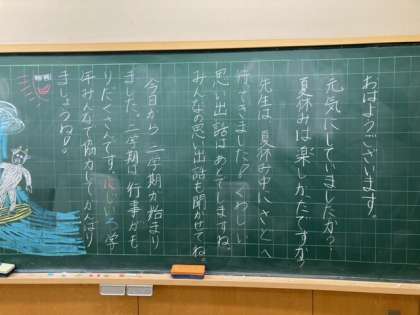 おはようございます。
元気にしていましたか？
夏休みは楽しかたですか？
先生は、夏休み中にさとへ
行てきました！くわしい
思い出話はあとでしますね。
みんなの思い出話も聞かせてね。
今日から二学期が始まり
ました。二学期は行事がも
りだくさんです。にじいろ学
年みんなで協力してがんばり
ましょうね！